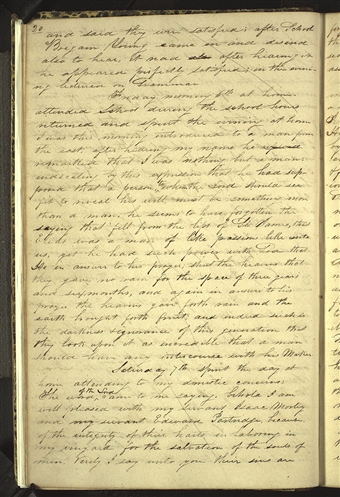 20
and said they were satisfied; after School
Brigam Young came in and desired
also to hear it read after hearing it
he appeared perfectly satisfied; in the even-
ing lectured on Grammar.
Friday morning 6th at home.
attended School during the school hours
returned and spent the evening at home
I was this morning introduced to a man from
the east, after hearing my name he
remarked that I was nothing but a man:
indicating by this expression that he had sup-
posed that a person to whom the Lord should see
fit to reveal his will must be something more
than a man, he seems to have forgotten the
saying that fell from the lips of St. James, that
Elias was a man of like passions like unto
us, yet he had such power with God that
He in answer to his prayer, shut the heavens that
they gave no rain for the space of three years
and six months, and again in answer to his
prayer the heavens gave forth rain and the
earth brought forth fruit; and indeed such is
the darkness & ignorance of this generation that
they look upon it as incredible that a man
should have any intercourse with his Maker.
Saturday 7th spent the day at
home attending to my domestic concerns;
The word of the Lord came to me saying, behold I am
well pleased with my servant Isaac Morley
and my servant Edward Partridge, because
of the integrity of their harts in laboring in
my vinyard for the salvation of the souls of
men, Verily I say unto you their sins are